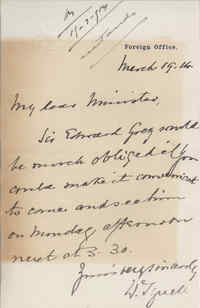 Foreign Office.
March 19. 14
My dear Minister,
Sir Edward Grey would
be much obliged if you
could make it convenient
to come and see him
on Monday afternoon
next at 3.30.
Yours very sincerely